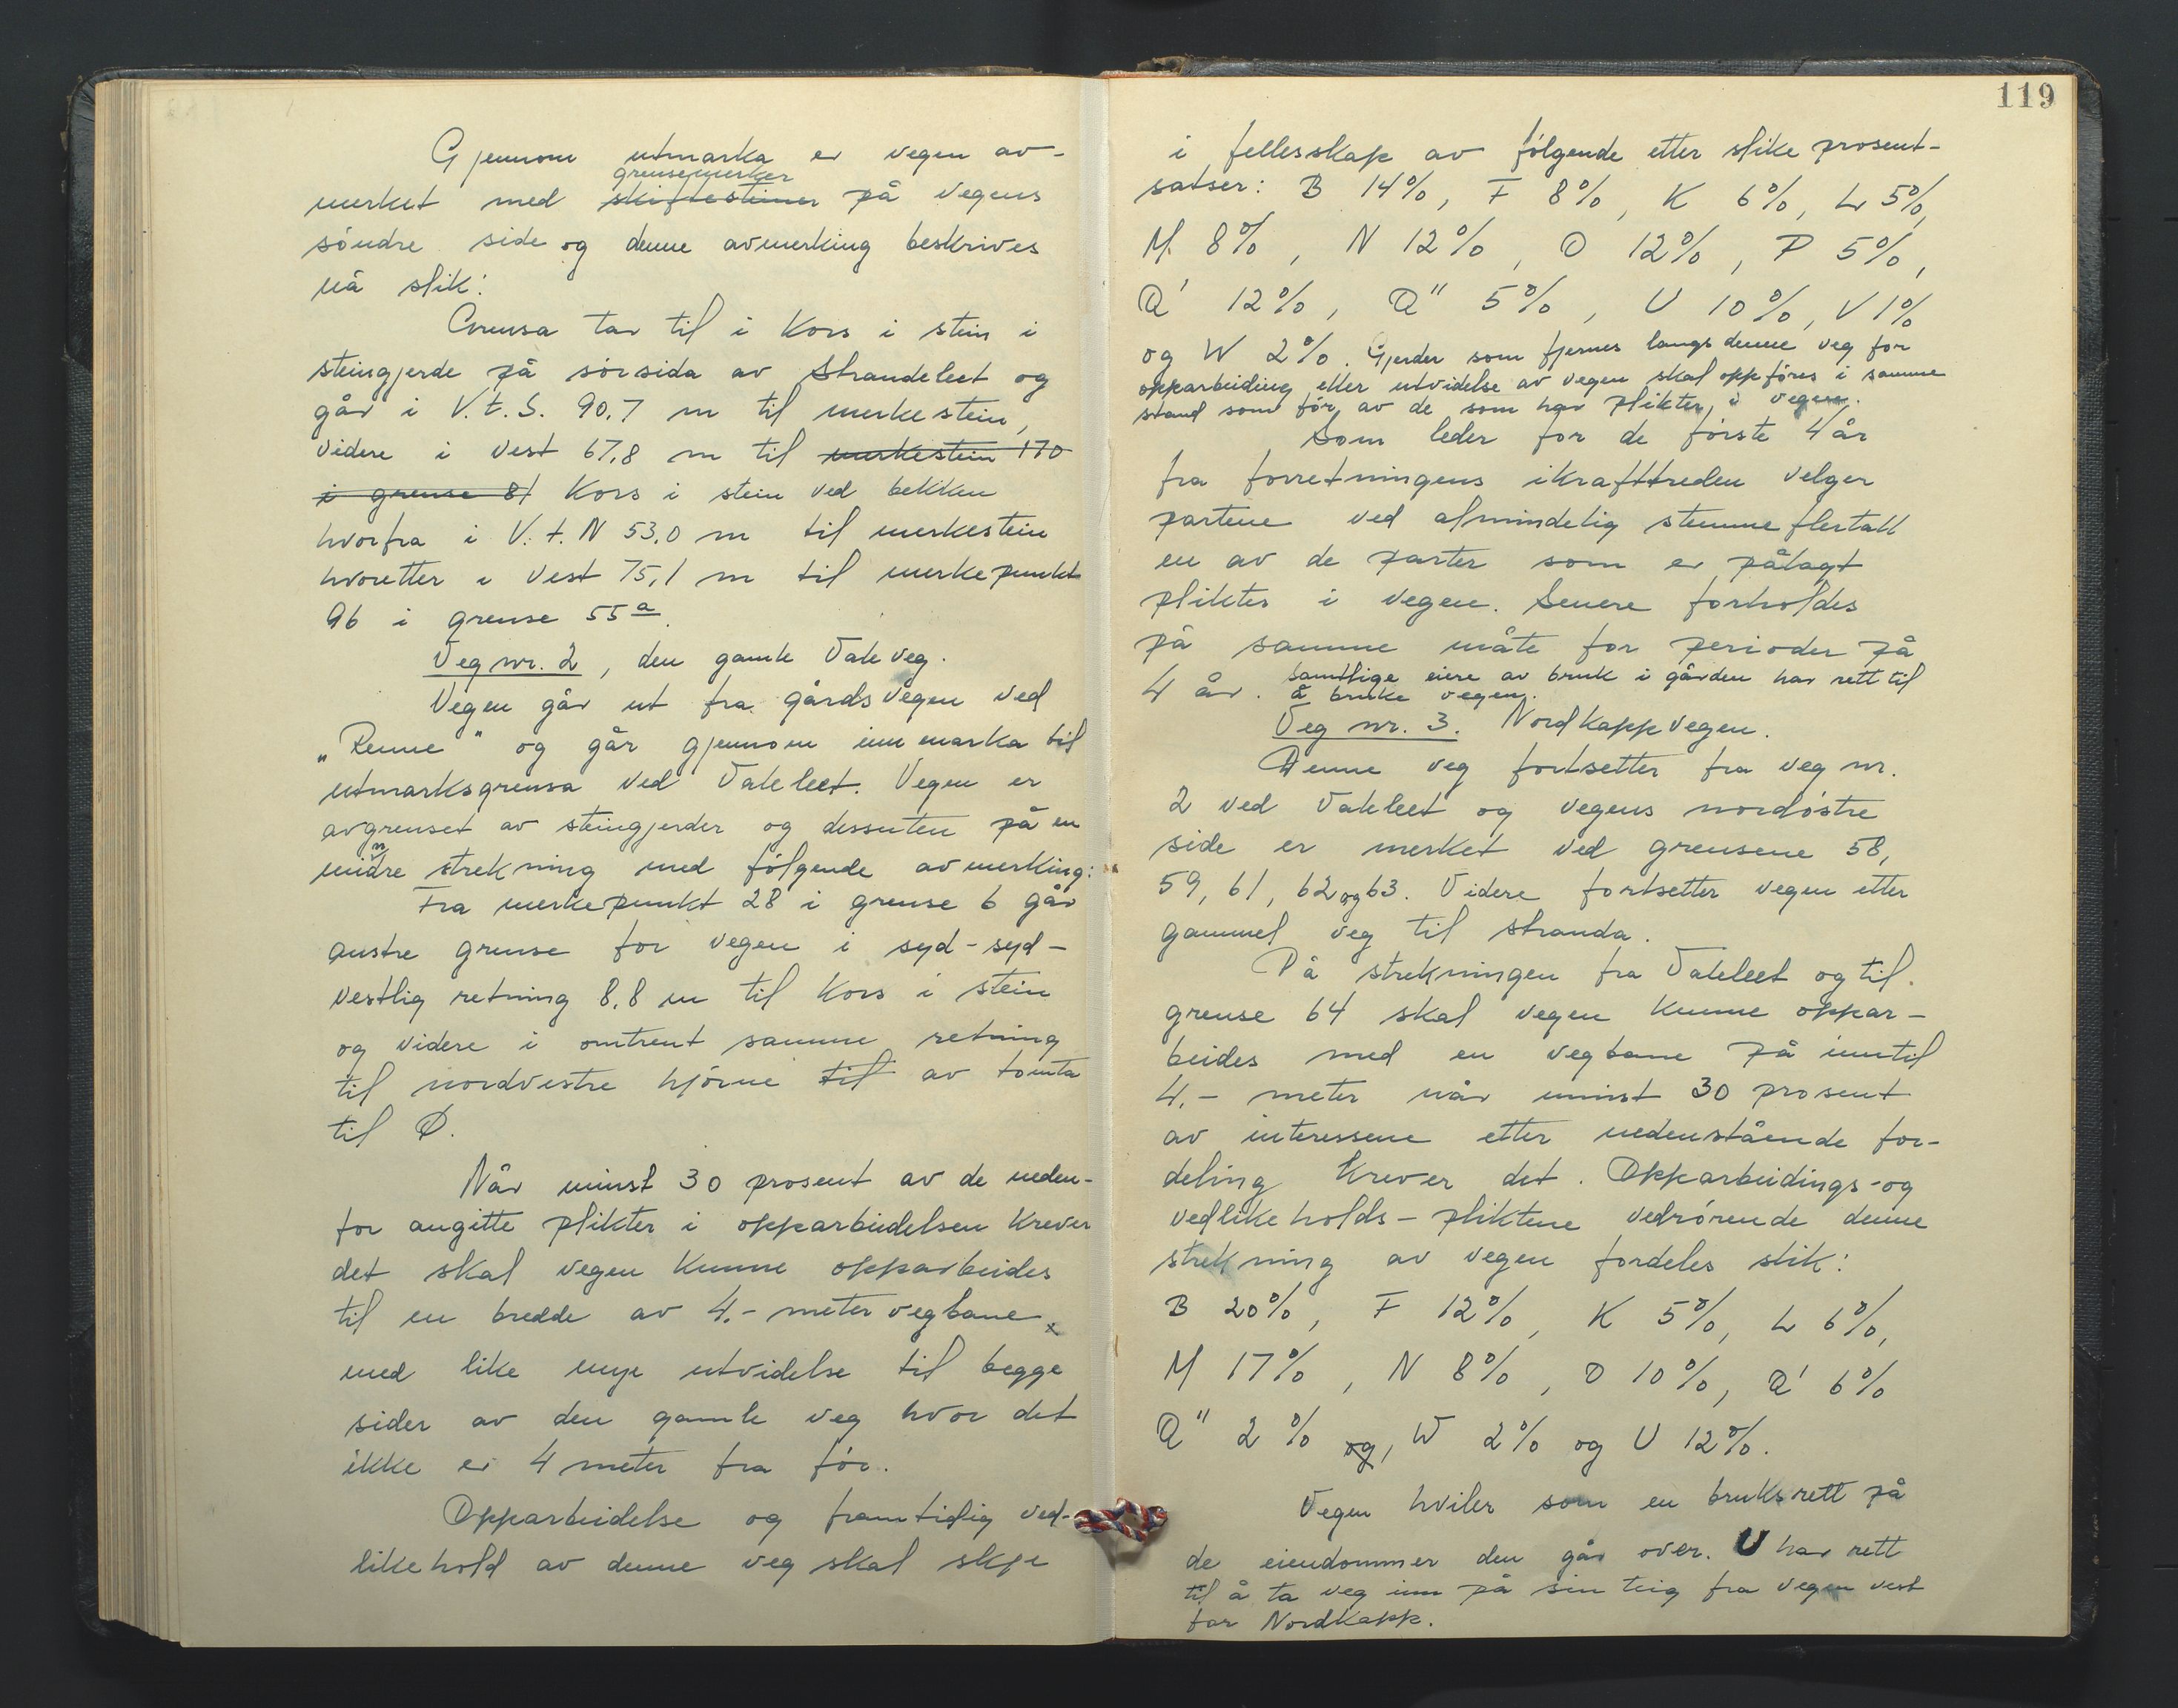 Gjennom utmarka er vegen av-
grensemerker
merket med skiftesteiner på vegens
søndre side og denne avmerking beskrives
nå slik:
Grensa tar til i Kors i stein i
steingjerde på sørsida av Strandeleet og
går i V.t.S. 90,7 m til merkestein,
videre i vest 67,8 m til merkestein 170
i grense 81 Kors i stein ved bekken
hvorfra i V.t.N 53,0 m til merkestein
hvoretter i vest 75,1 m til merkepunkt
96 i grense 55 a.
Veg nr. 2, den gamle Valeveg.
Vegen går ut fra gårdsvegen ved
„Renne" og går gjennom innmarka til
utmarksgrensa ved Valeleet. Vegen er
avgrenset av steingjerder og dessuten på en
mindre strekning med følgende avmerking:
Fra merkepunkt 28 i grense 6 går
austre grense for vegen i syd-syd-
vestlig retning 8,8 m til Kors i stein
og videre i omtrent samme retning
til nordvestre hjørne til av tomta
til Ø.
Når minst 30 prosent av de neden-
for angitte plikter i opparbeidelsen krever
det skal vegen kunne opparbeides
til en bredde av 4.- meter vegbane x
med like mye utvidelse til begge
sider av den gamle veg hvor det
ikke er 4 meter fra før.
Opparbeidelse og framtidig ved-
likehold av denne veg skal skje
119
i fellesskap av følgende etter slike prosent-
satser: B 14%, F 8%, K 6%, L 5%,
M 8%, N 12%, O 12%, P 5%,
Q' 12%, Q" 5%, U 10%, V 1%
og W 2%. Gjerder som fjernes langs denne veg for
opparbeiding eller utvidelse av vegen skal oppføres i samme
stand som før, av de som har plikter i vegen.
Som leder for de første 4 år
fra forretningens ikrafttreden velger
partene ved almindelig stemmeflertall
en av de parter som er pålagt
plikter i vegen. Senere forholdes
på samme måte for perioder på
4 år. Samtlige eiere av bruk i gården har rett til
å bruke vegen.
Veg nr. 3. Nordkappvegen.
Denne veg fortsetter fra veg nr.
2 ved Valeleet og vegens nordøstre
side er merket ved grensene 58,
59, 61, 62 og 63. Videre fortsetter vegen etter
gammel veg til stranda.
På strekningen fra Valeleet og til
grense 64 skal vegen kunne oppar-
beides med en vegbane på inntil
4.- meter når minst 30 prosent
av interessene etter nedenstående for-
deling krever det. Opparbeidings- og
vedlikeholds-pliktene vedrørende denne
strekning av vegen fordeles slik:
B 20%, F 12%, K 5%, L 6%,
M 17%, N 8%, O 10%, Q' 6%
Q" 2% og, W 2% og U 12%.
Vegen hviler som en bruksrett på
de eiendommer den går over. U har rett
til å ta veg inn på sin teig fra vegen vest
for Nordkapp.